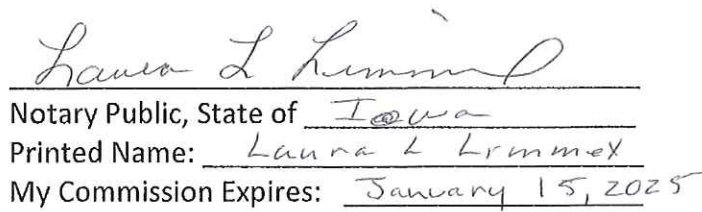 Laura L Limmex
Notary Public, State of Iowa
Printed Name: Laura L Limmex
My Commission Expires: January 15, 2025